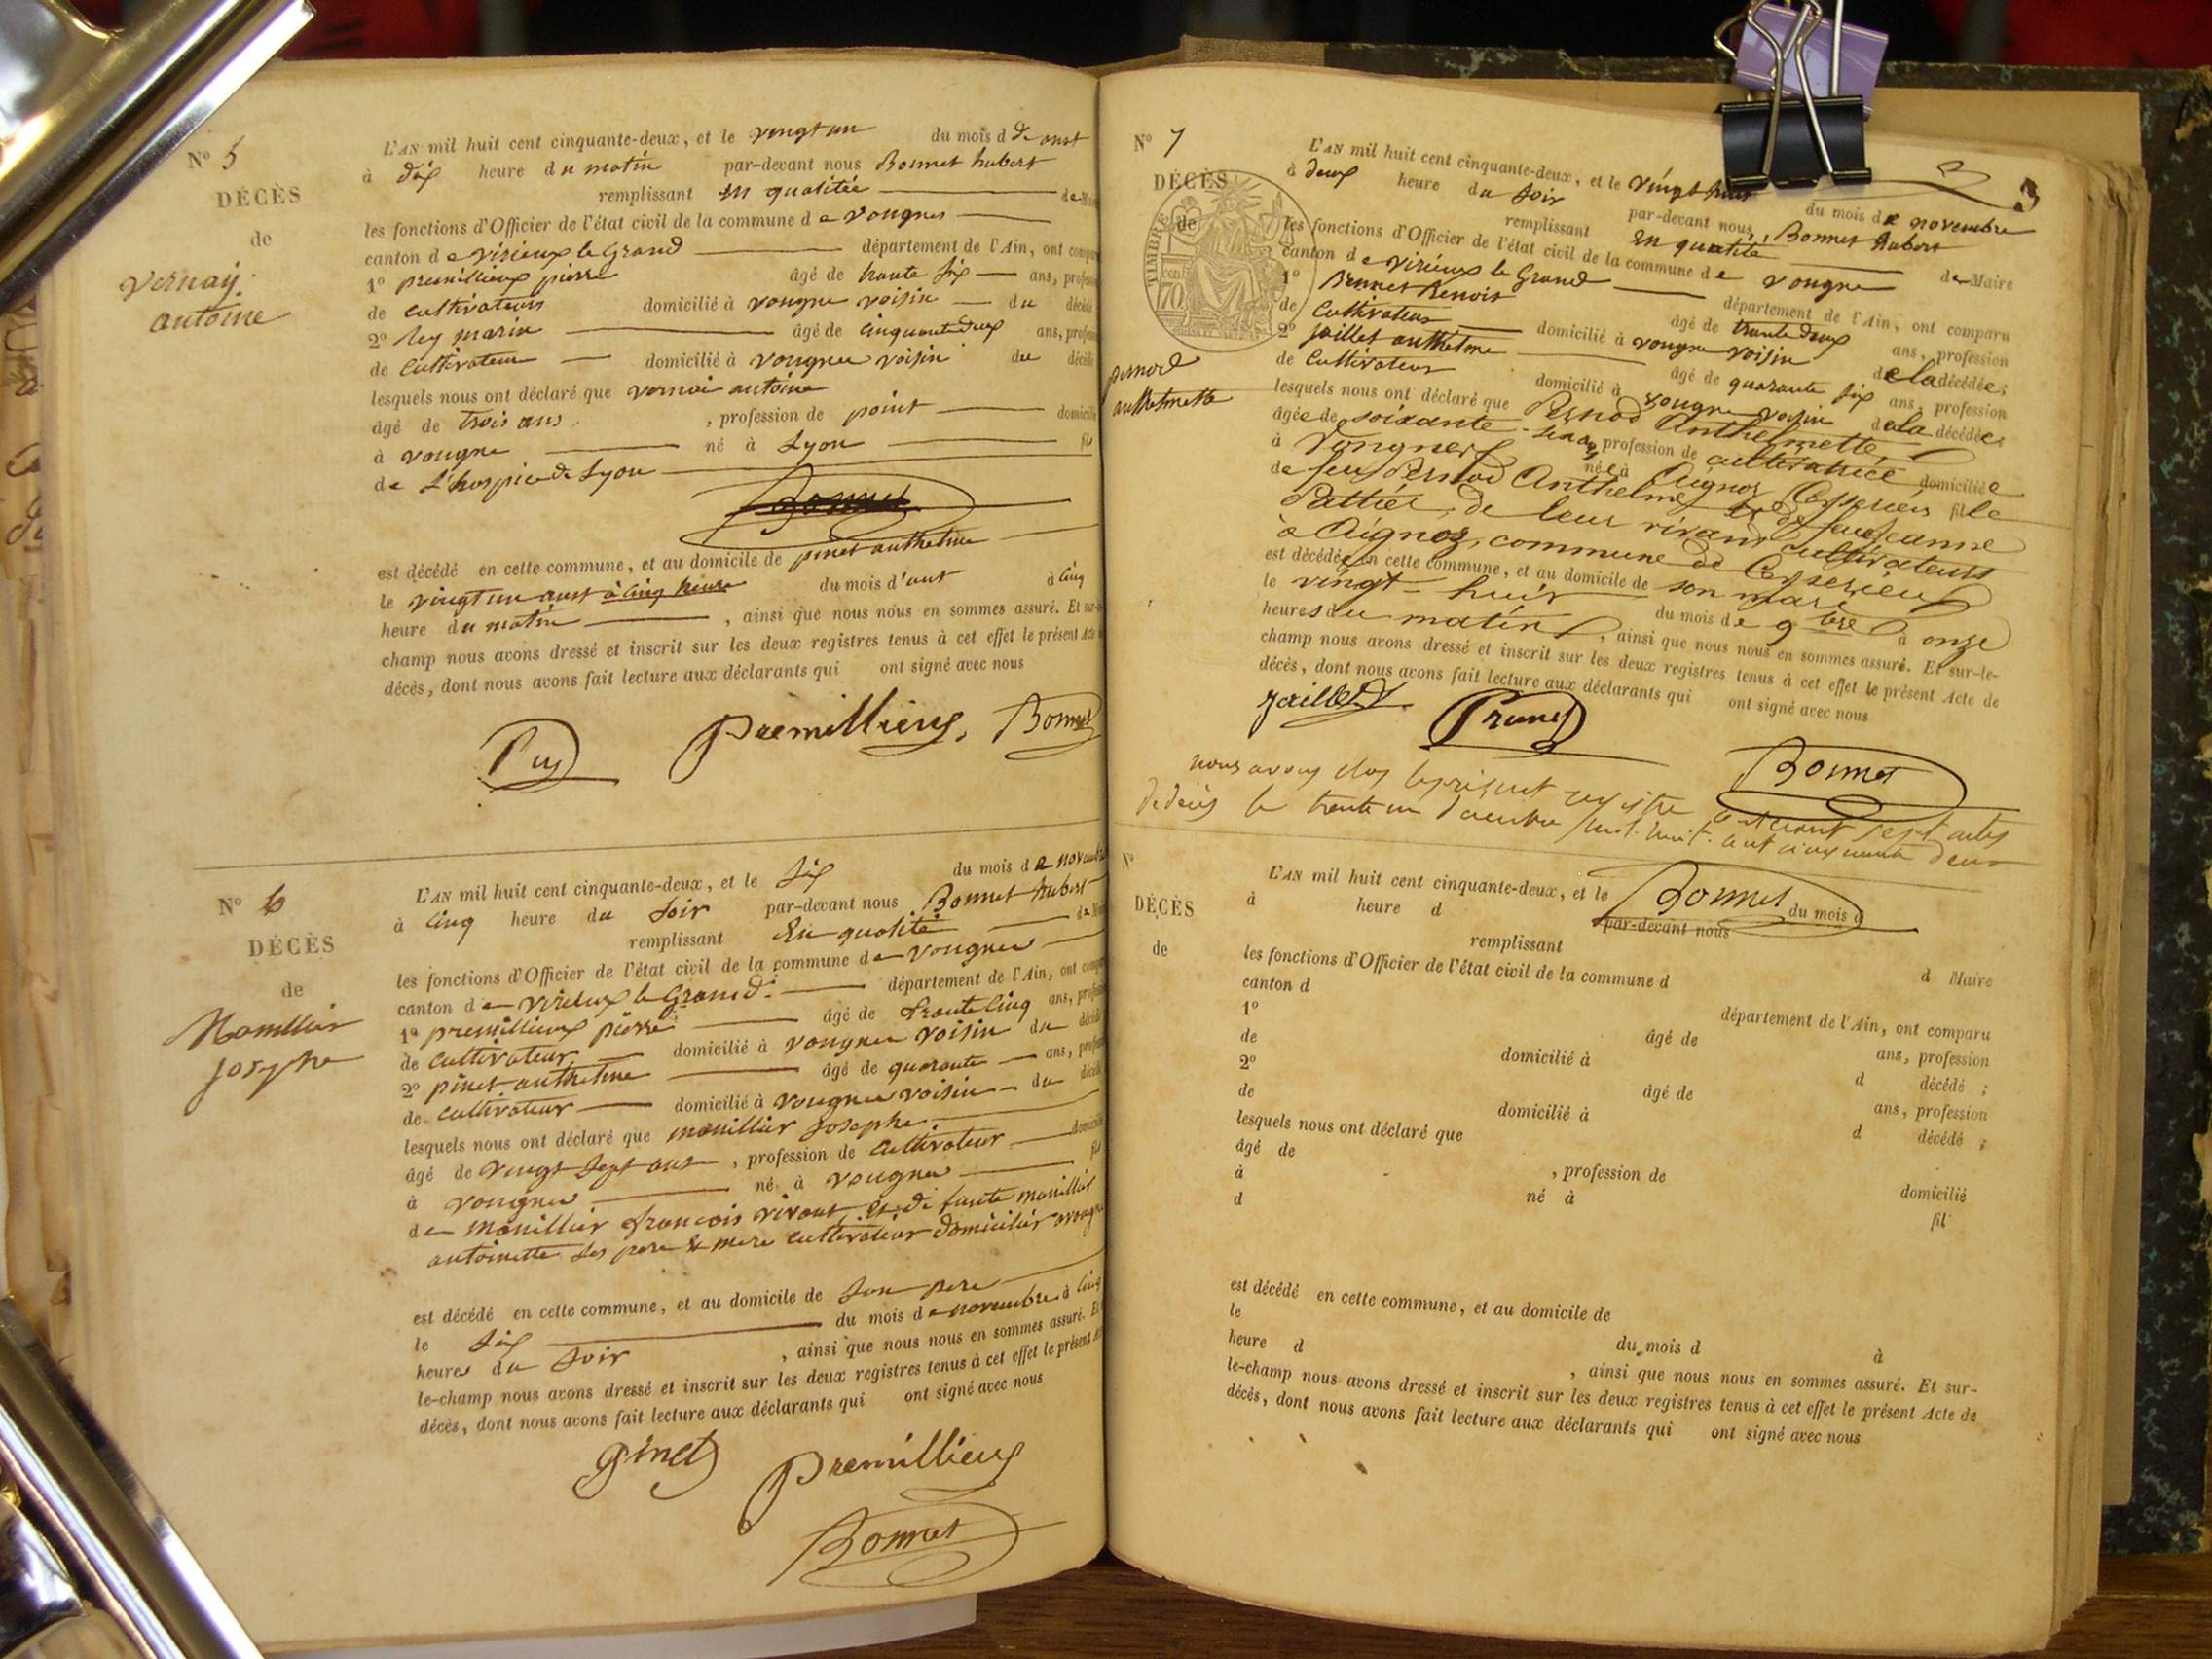 N° 5
DÉCÈS
de
Vernay
antoine
L'AN mil huit cent cinquante-deux, et le vingt un du mois d de aust
à dix heure du matin par-devant nous Bonnet hubert
remplissant en qualitée de
les fonctions d'Officier de l'état civil de la commune de vongnes
canton de virieux le Grand département de l'Ain, ont
1° premillieux pierre âgé de trante six ans,
de cultivateurs domicilié à vongne voisin du
2° Rey marin âgé de cinquante deux ans,
de cultivateur domicilié à vongnes voisin du
lesquels nous ont déclaré que vernai antoine
âgé de trois ans, profession de point
à vongne né à Lyon
de L'hospice de Lyon
Bonnet
est décédé en cette commune, et au domicile de pinet anthelme
le vingt un aust à cinq heure du mois d'aut à cinq
heure du matin, ainsi que nous nous en sommes assuré. Et
champ nous avons dressé et inscrit sur les deux registres tenus à cet effet le présent
décès, dont nous avons fait lecture aux déclarants qui ont signé avec nous
Premillieux, Bonnet
N° 6
DÉCÈS
de
Josephe
L'AN mil huit cent cinquante-deux, et le six du mois de
à cinq heure du soir par-devant nous Bonnet hubert
remplissant En qualité de
les fonctions d'Officier de l'état civil de la commune de vongnes
canton de virieux le Grand département de l'Ain, ont
1° premillieux pierre âgé de trante cinq ans,
de cultivateur domicilié à vongnes voisin du
2° pinet anthelme âgé de quarante ans,
de cultivateur domicilié à vongnes voisin du
lesquels nous ont déclaré que monillier Josephe
âgé de vingt sept ans, profession de cultivateur
à vongnes né à vongnes
de monillier francois vivant et de
antoinette ses pere & mere cultivateur domicilier
est décédé en cette commune, et au domicile de son pere
le six du mois de novembre à cinq
heures du soir, ainsi que nous nous en sommes assuré.
le-champ nous avons dressé et inscrit sur les deux registres tenus à cet effet le présent
décès, dont nous avons fait lecture aux déclarants qui ont signé avec nous
Pinet Premillieux
Bonnet
N° 7
DÉCÈS
de
TIMBRE
70
pernod
anthelmette
3
L'AN mil huit cent cinquante-deux, et le vingt huit du mois de novembre
à deux heure du soir par-devant nous, Bonnet hubert
remplissant En qualité de Maire
les fonctions d'Officier de l'état civil de la commune de vongne
canton de virieux le Grand département de l'Ain, ont comparu
1° Benoit âgé de trante deux ans, profession
de cultivateur domicilié à vongne voisin de la décédée;
2° Jaillet anthelme âgé de quarante six ans, profession
de cultivateur domicilié à vongne voisin de la décédée;
lesquels nous ont déclaré que Pernod Anthelmette,
âgée de soixante profession de cultivatrice domiciliée
à Vongnes, née à Aignoz, Ceyserieu, file
de feu Pernod Anthelme et de feue Jeanne
de leur vivant cultivateurs
à Aignoz, commune de Ceyserieu
est décédée en cette commune, et au domicile de son mari
le vingt-huit du mois de 9bre à onze
heures du matin, ainsi que nous nous en sommes assuré. Et sur-le-
champ nous avons dressé et inscrit sur les deux registres tenus à cet effet le présent Acte de
décès, dont nous avons fait lecture aux déclarants qui ont signé avec nous
Jaillet Bonnet
nous avons clos le présent registre contenant sept actes
de décès le trente un décembre mil huit cent cinquante deux
Bonnet
N°
DÉCÈS
de
L'AN mil huit cent cinquante-deux, et le du mois d
à heure d par-devant nous
remplissant d Maire
les fonctions d'Officier de l'état civil de la commune d
canton d département de l'Ain, ont comparu
1° âgé de ans, profession
de domicilié à d décédé ;
2° âgé de ans, profession
de domicilié à d décédé ;
lesquels nous ont déclaré que
âgé de , profession de domicilié
à né à fil
d
est décédé en cette commune, et au domicile de
le du mois d à
heure d , ainsi que nous nous en sommes assuré. Et sur-
le-champ nous avons dressé et inscrit sur les deux registres tenus à cet effet le présent Acte de
décès, dont nous avons fait lecture aux déclarants qui ont signé avec nous